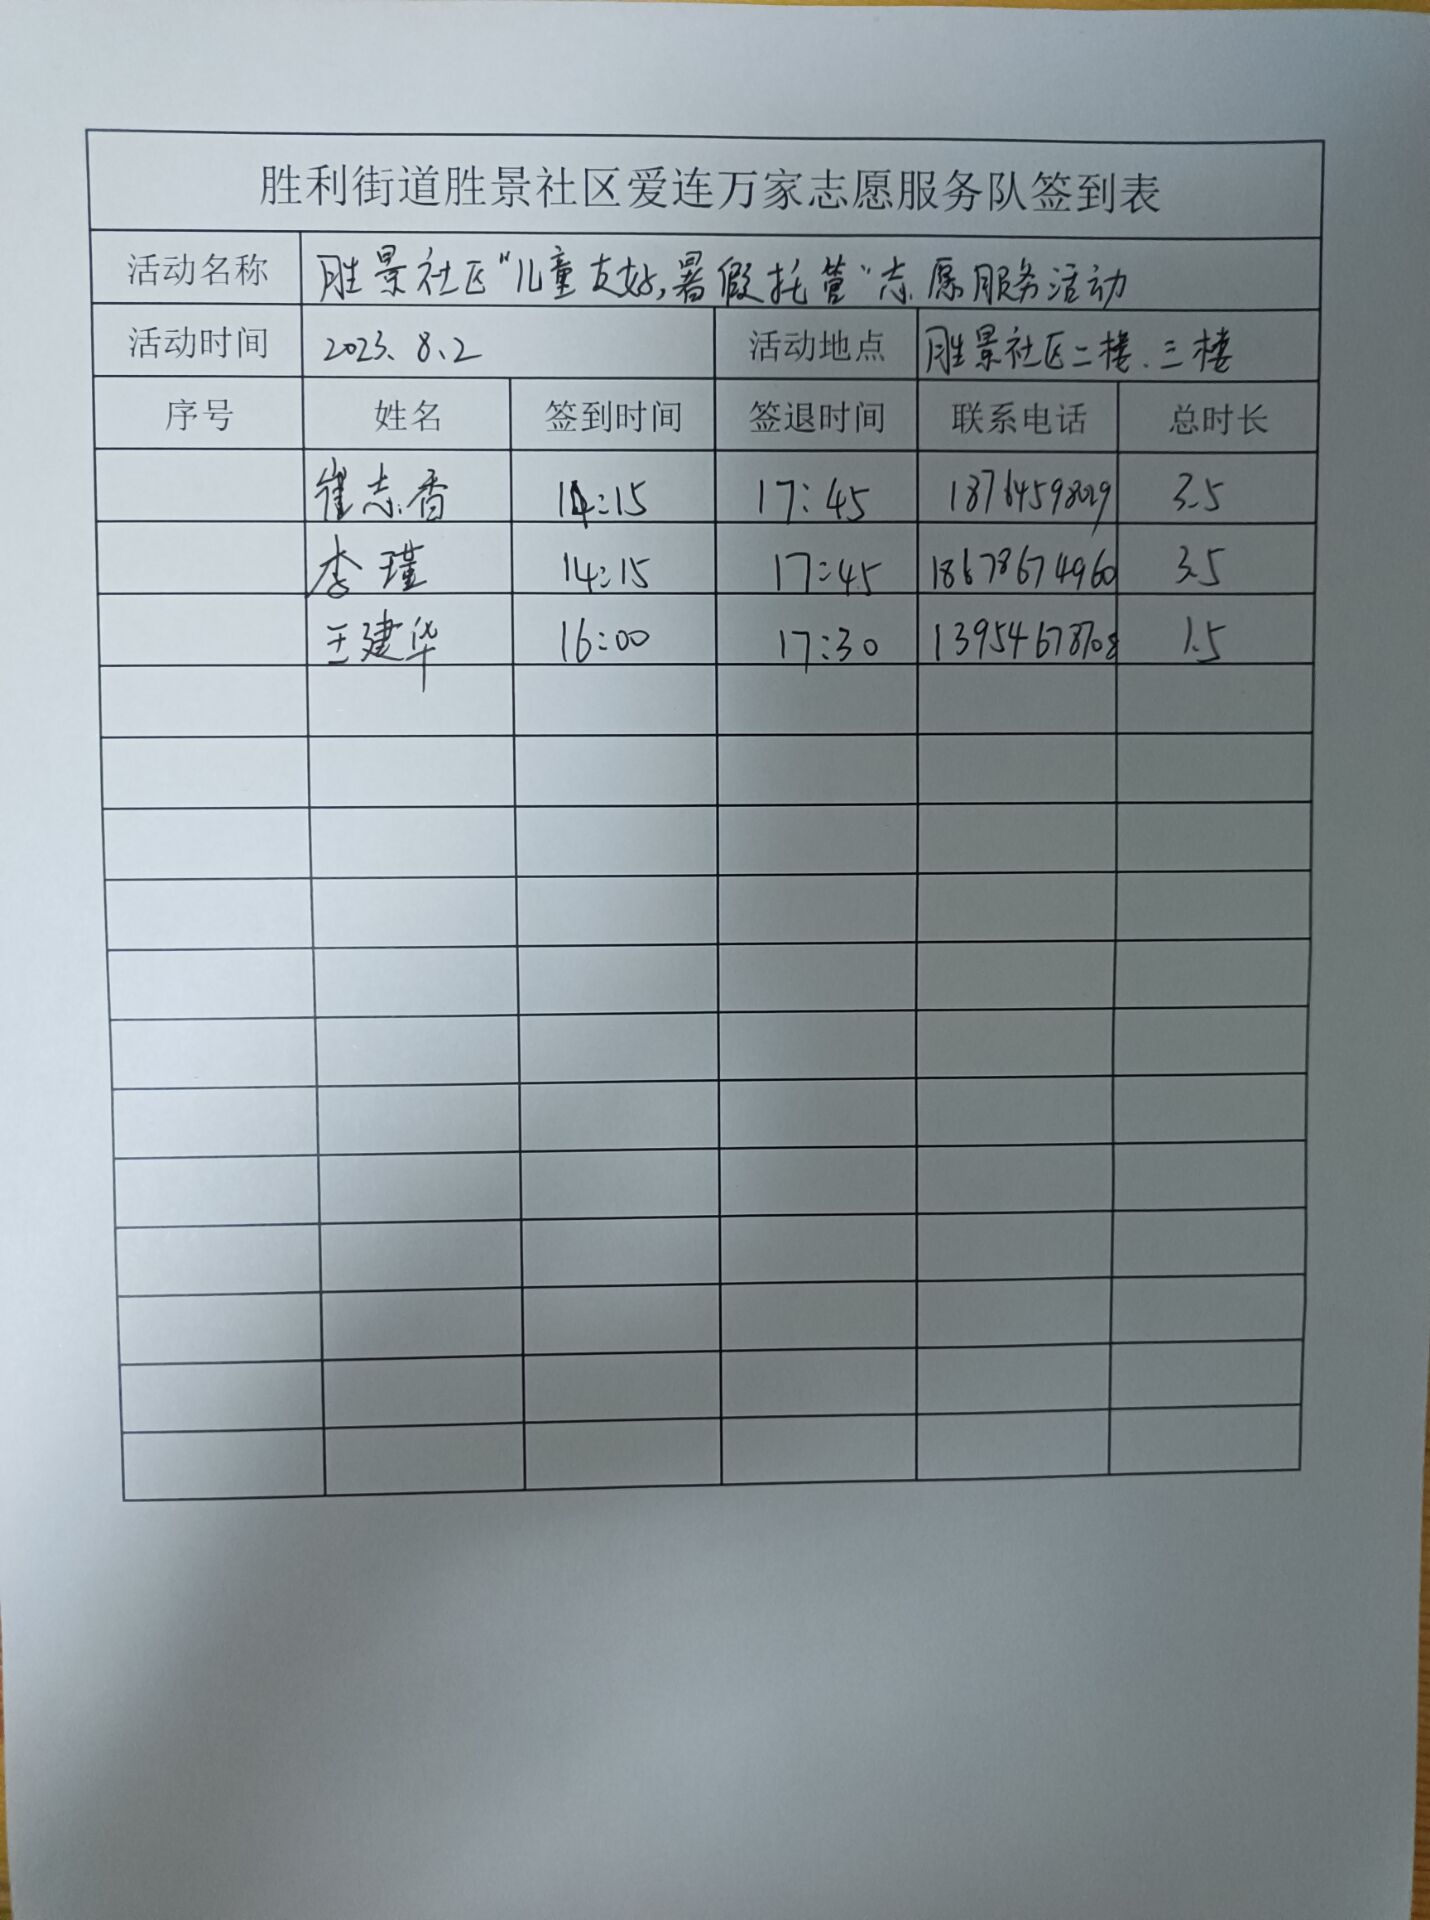 胜利街道胜景社区爱连万家志愿服务队签到表
活动名称 胜景社区“儿童友好,暑假托管”志愿服务活动
活动时间 2023、8、2 活动地点 胜景社区二楼、三楼
序号 姓名 签到时间 签退时间 联系电话 总时长
崔志香 14:15 17:45 18764598029 3.5
李瑾 14:15 17:45 18678674960 3.5
王建华 16:00 17:30 13954678708 1.5